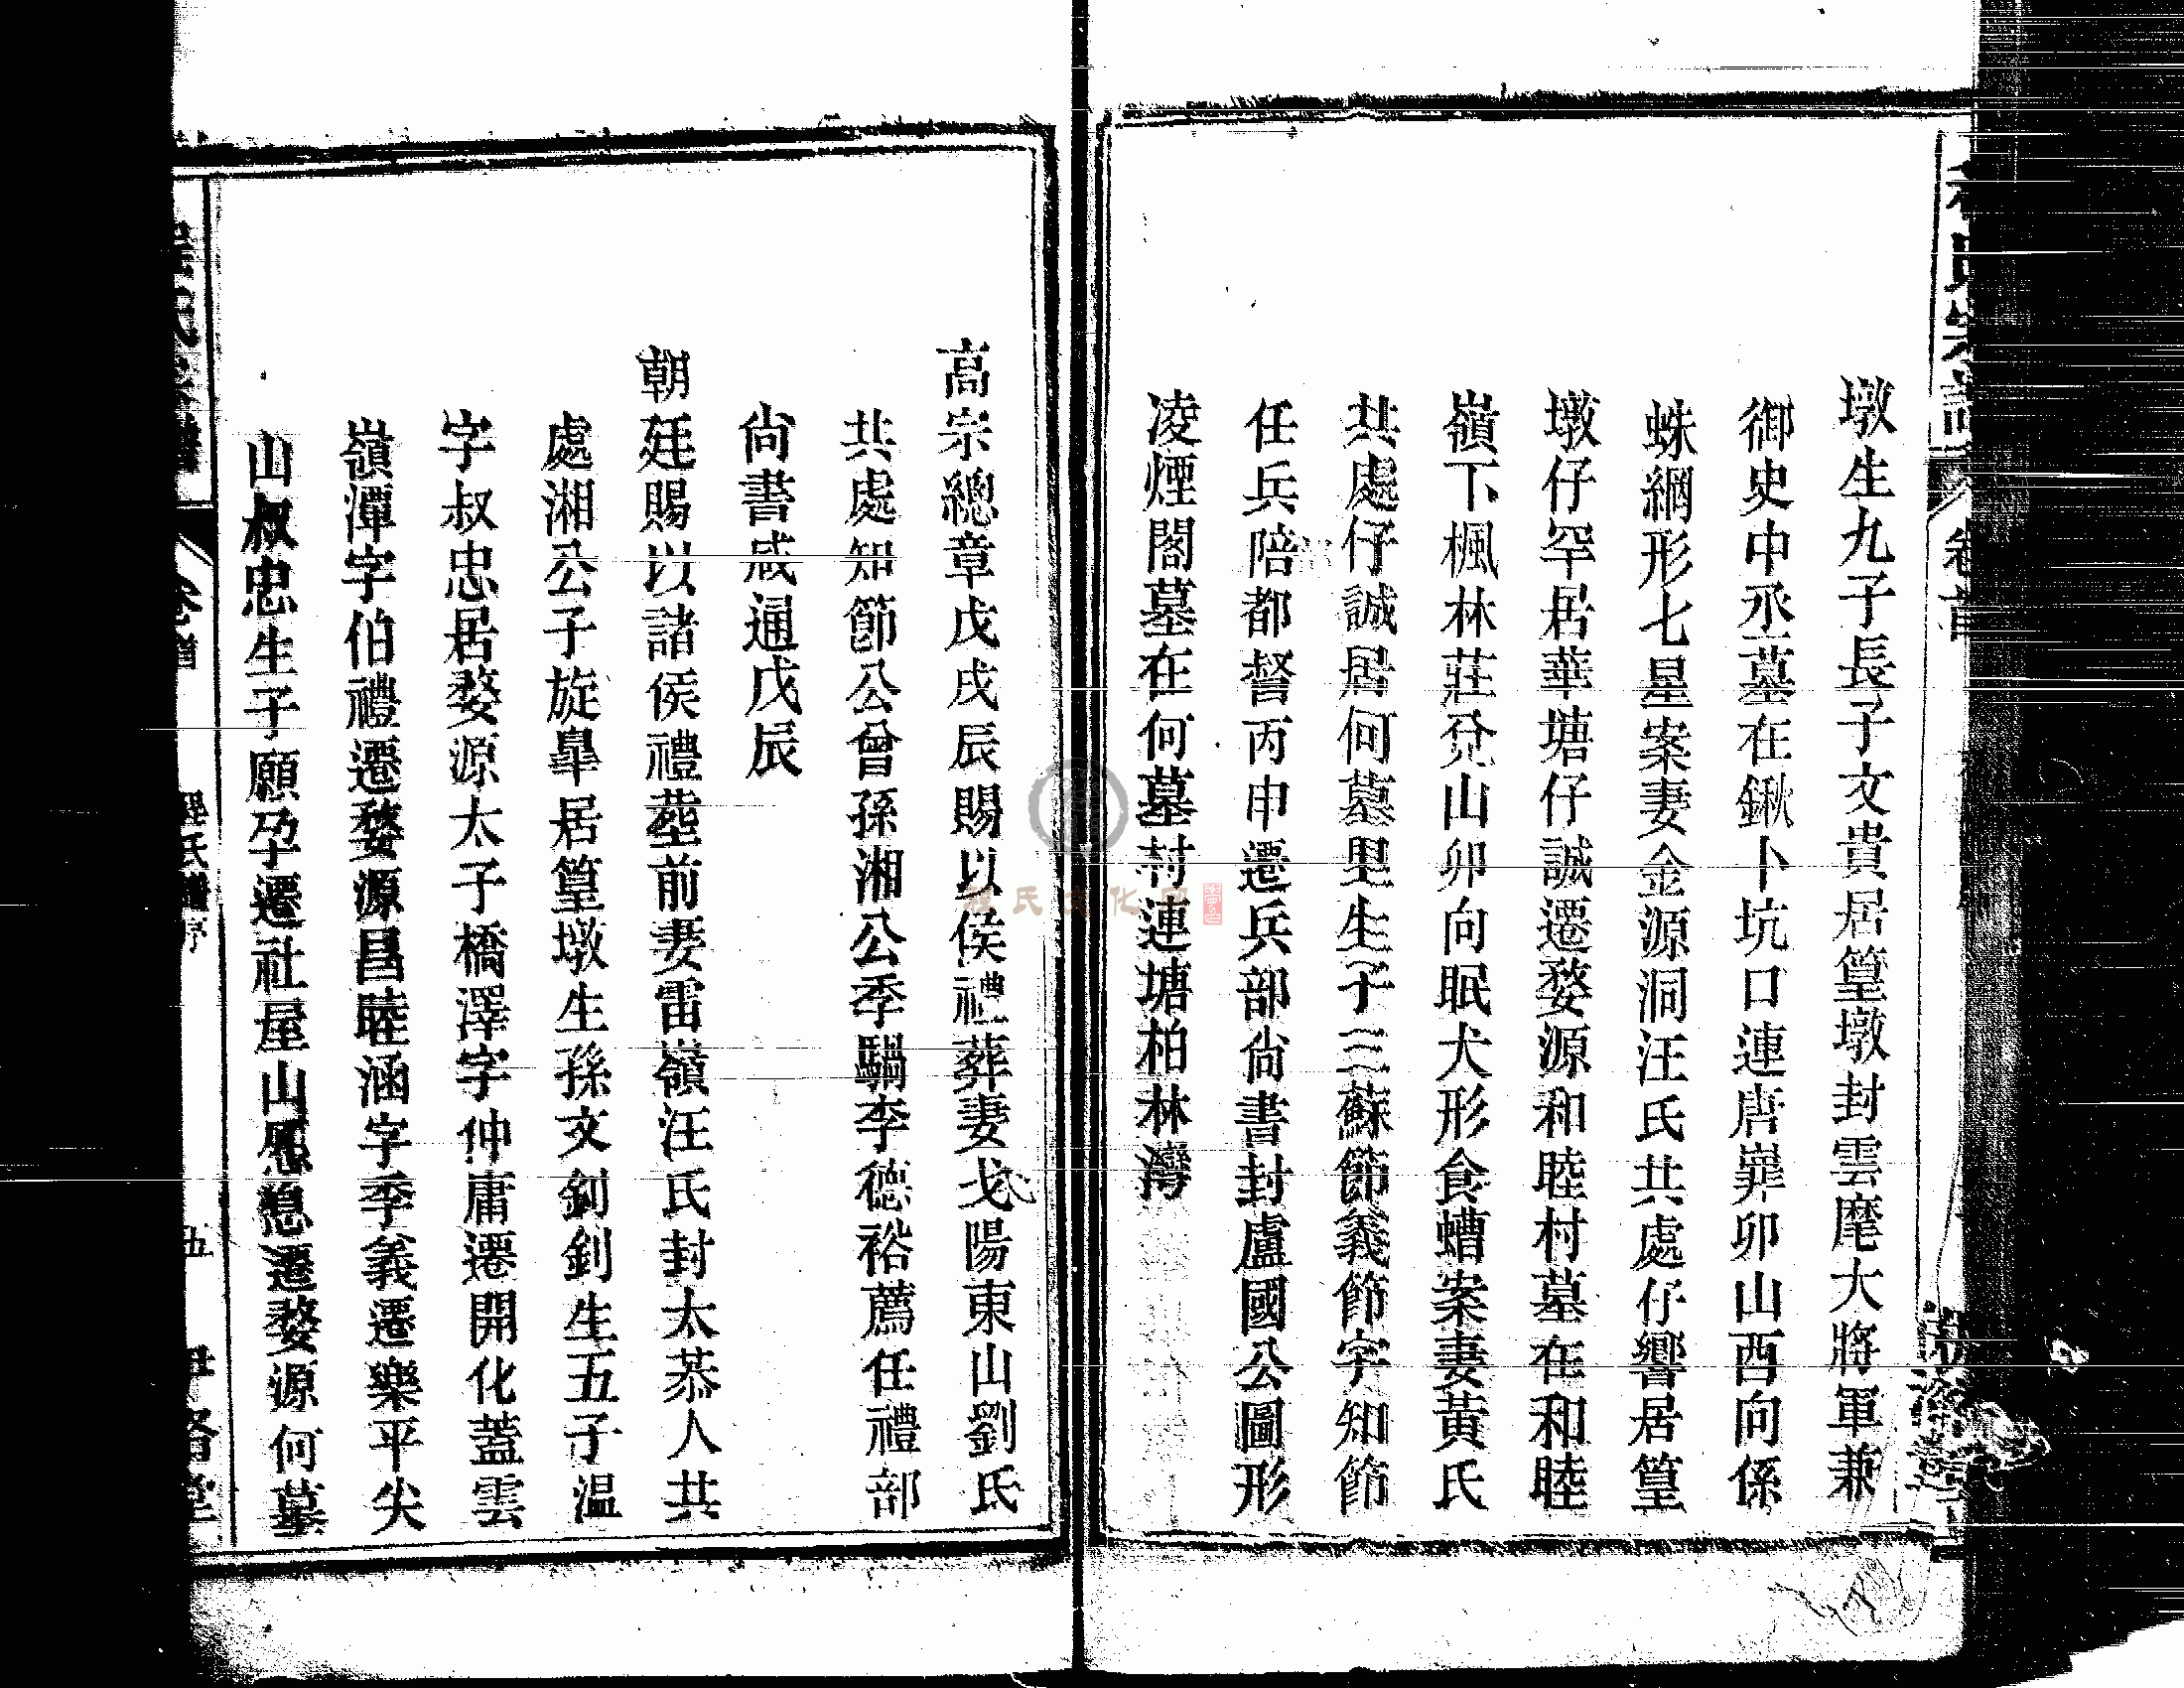 墩生九子長子文貴居篁墩封雲麾大將軍兼
御史中丞墓在鍬卜坑口連唐嶭卯山酉向係
蛛網形七星案妻金源洞汪氏共處仔響居篁
墩仔罕居華塘仔誠遷婺源和睦村墓在和睦
嶺下楓林莊兊山卯向眠犬形食螬案妻黃氏
共處仔誠居何墓里生子三蘇節義節字知節
任兵陪都督丙申遷兵部尙書封盧國公圖形
凌煙閣墓在何墓村連塘柏林灣
高宗總章戊戌辰賜以侯禮葬妻弋陽東山劉氏
共處知節公曾孫湘公季騆李德裕薦任禮部
尙書咸通戊辰
朝廷賜以諸侯禮塟前妻雷嶺汪氏封太恭人共
處湘公子旋臯居篁墩生孫文釗釗生五子温
字叔忠居婺源太子橋澤字仲庸遷開化蓋雲
嶺潭字伯禮遷婺源昌睦涵字季義遷樂平尖
山叔忠生子願孕遷社屋山慿息遷婺源何墓
卷首
五